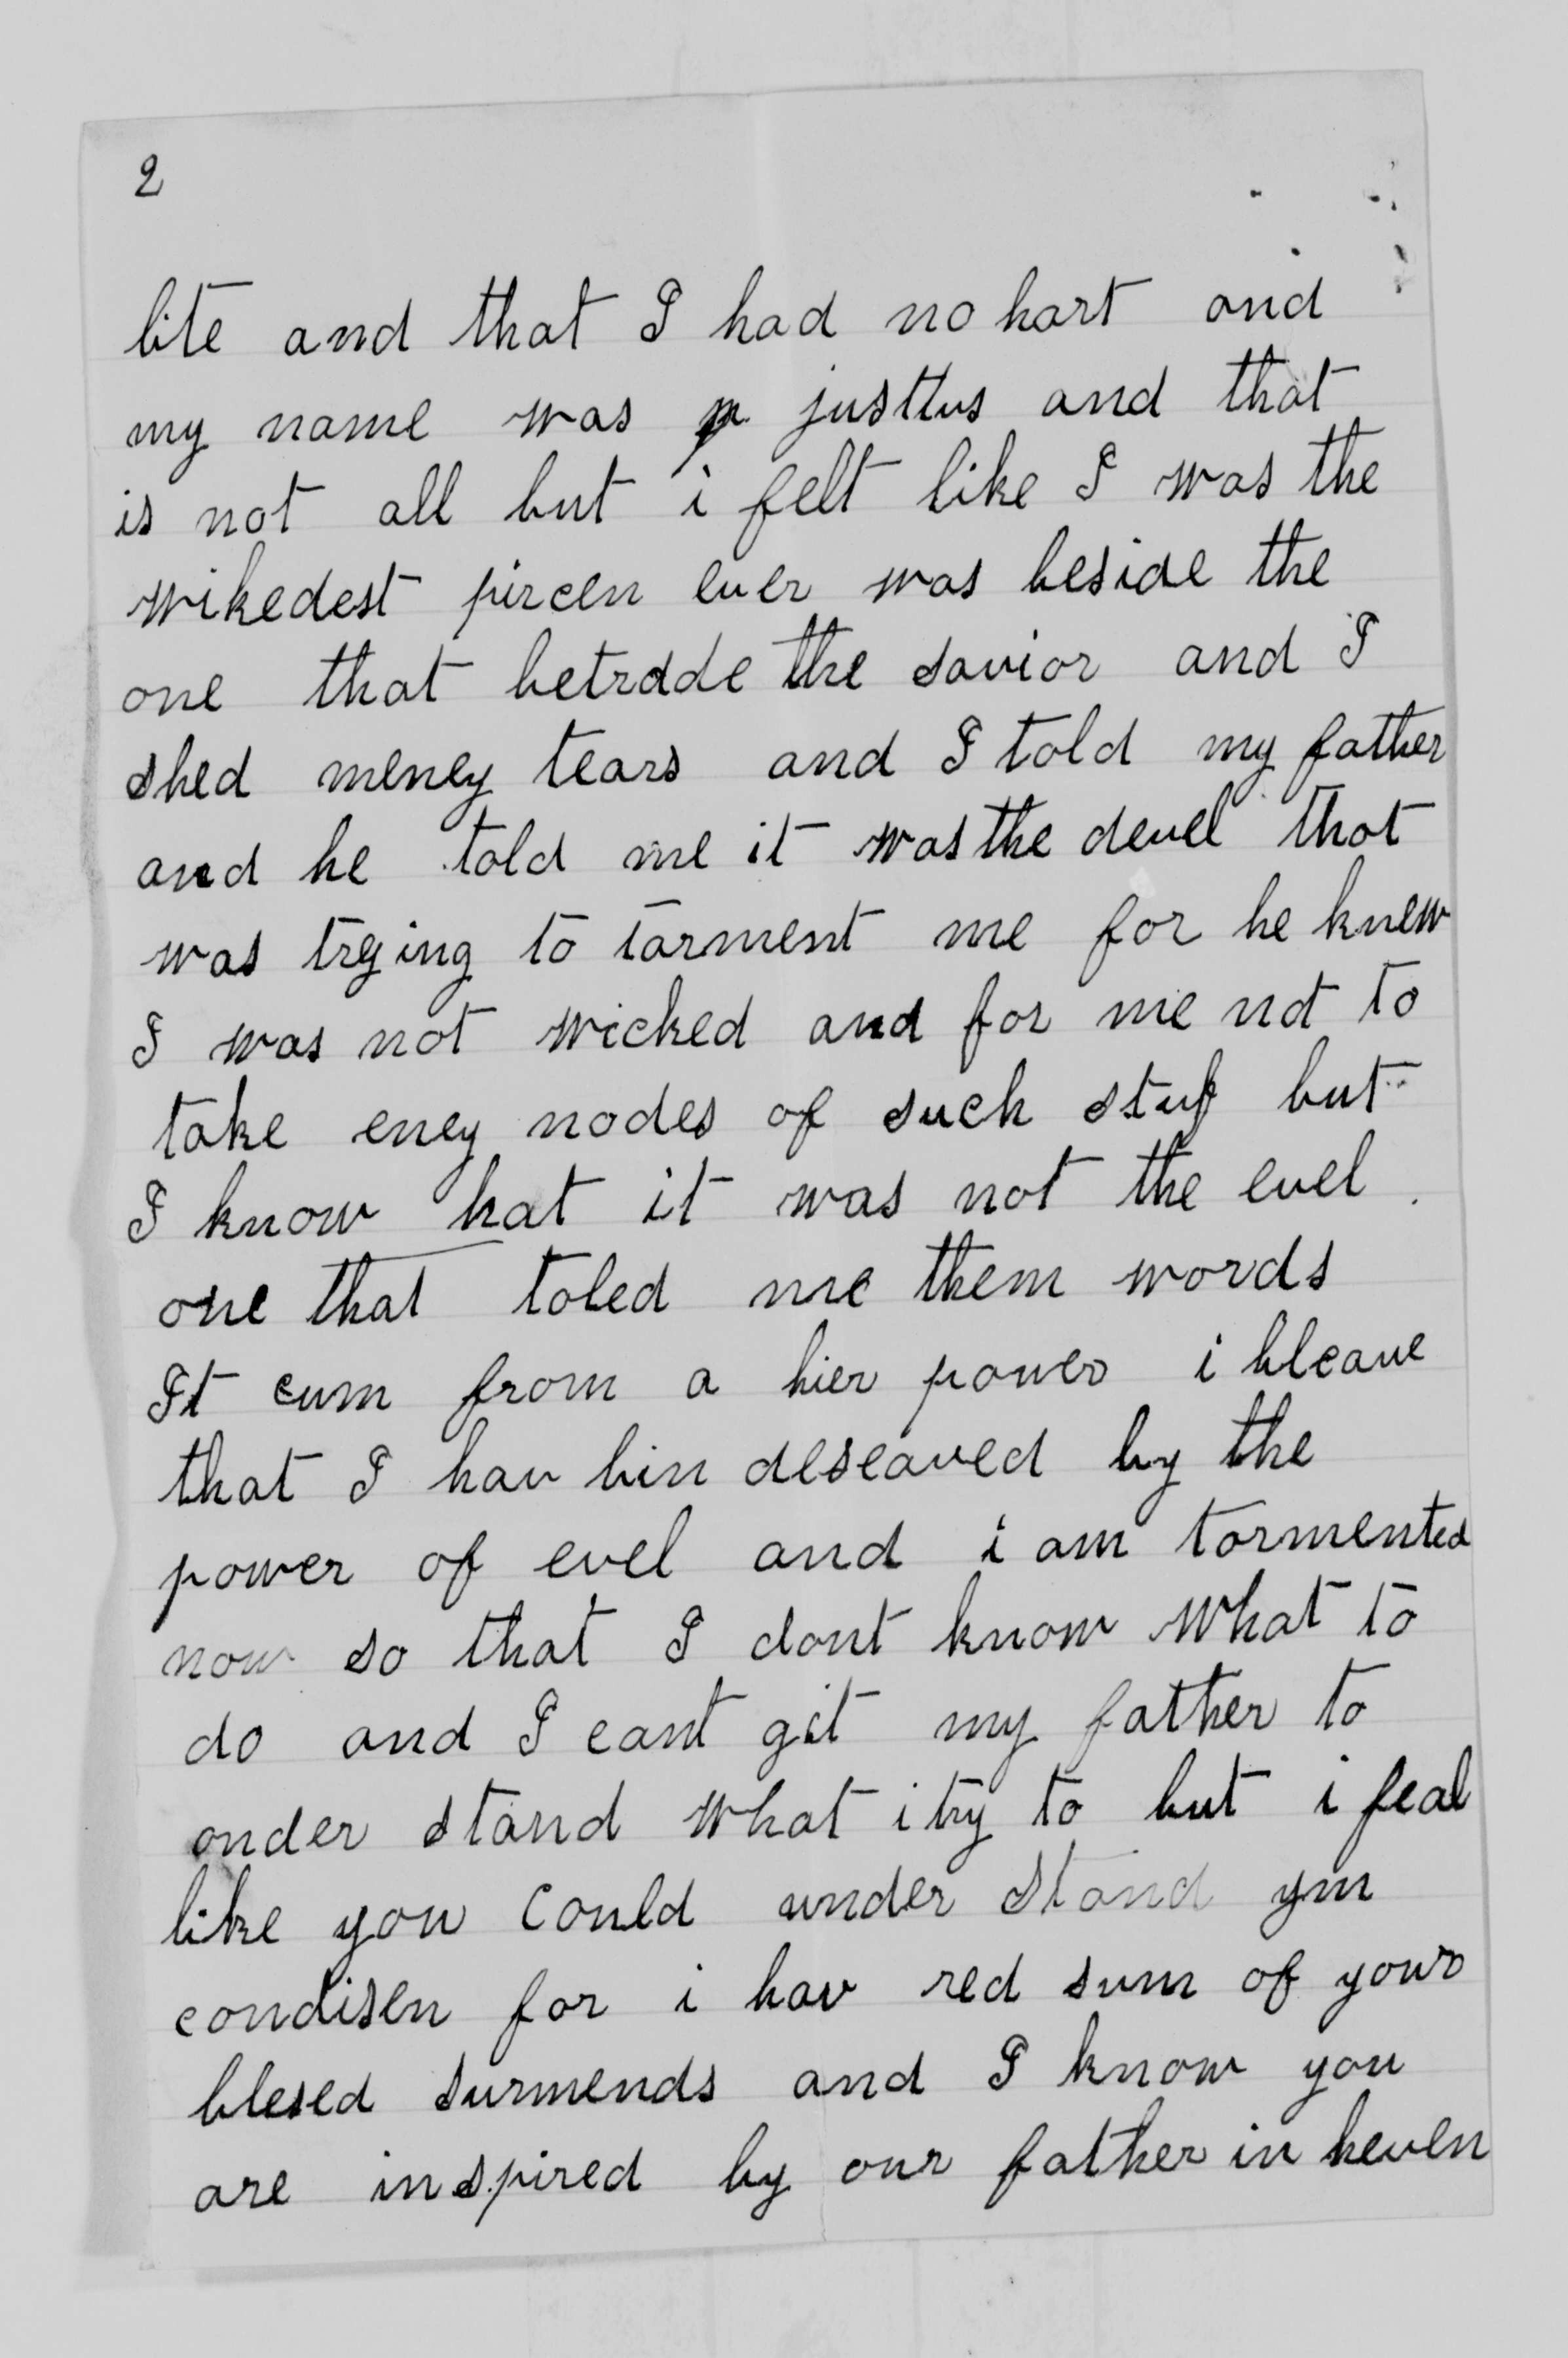 2
lite and that I had no hart and
my name was justtus and that
is not all but i felt like I was the
wikedest pircen ever was beside the
one that betrade the savior and I
shed meney tears and I told my father
and he told me it was the devel that
was trying to torment me for he knew
I was not wicked and for me not to
take eney nodes of such stuf but
I know hat it was not the evel
one that toled me them words
It cum from a hier power i bleave
that I hav bin deseaved by the
power of evel and i am tormented
now so that I dont know what to
do and I cant git my father to
onder stand what i try to but i feal
like you could under stand ym
condisen for i hav red sum of your
blesed surmends and I know you
are inspired by our father in heven